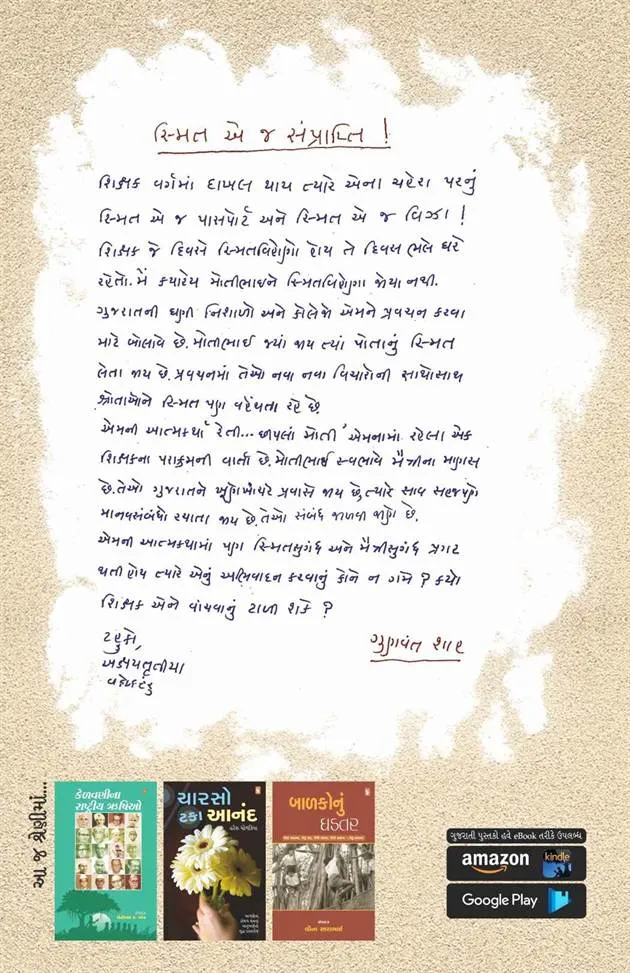 સ્મિત એ જ સંપ્રાપ્તિ !
શિક્ષક વર્ગમાં દાખલ થાય ત્યારે એના ચહેરા પરનું
સ્મિત એ જ પાસપોર્ટ અને સ્મિત એ જ વિઝા !
શિક્ષક જે દિવસે સ્મિતવિહોણો હોય તે દિવસ ભલે ઘરે
રહેતો. મેં ક્યારેય મોતીભાઇને સ્મિતવિહોણા જોયા નથી.
ગુજરાતની ઘણી નિશાળો અને કોલેજો એમને પ્રવચન કરવા
માટે બોલાવે છે. મોતીભાઈ જ્યાં જાય ત્યાં પોતાનું સ્મિત
લેતા જાય છે. પ્રવચનમાં તેઓ નવા નવા વિચારોની સાથોસાથ
શ્રોતાઓને સ્મિત પણ વહેંચતા રહે છે
એમની આત્મકથા 'રેતી... છીપલાં મોતી' એમનામાં રહેલા એક
શિક્ષકના પરાક્રમની વાર્તા છે. મોતીભાઈ સ્વભાવે મૈત્રીના માણસ
છે. તેઓ ગુજરાતને ખૂણેખાંચરે પ્રવાસે જાય છે, ત્યારે સાવ સહજપણે
માનવસંબંધો રચાતા જાય છે. તેઓ સંબંધ જાળવી જાણે છે.
એમની આત્મકથામાં પણ સ્મિતસુગંધ અને મૈત્રીસુગંધ પ્રગટ
થતી હોય ત્યારે એનું અભિવાદન કરવાનું કોને ન ગમે ? કયો
શિક્ષક એને વાંચવાનું ટાળી શકે ?
ટહુકો,
અક્ષયતૃતીયા
ગુણવંત શાહ
આ જ શ્રેણીમાં...
કેળવણીના
રાષ્ટ્રીય ઋષિઓ
ચારસો
ટકા આનંદ
બાળકોનું
ઘડતર
ગુજરાતી પુસ્તકો હવે eBook તરીકે ઉપલબ્ધ
amazon kindle
Google Play